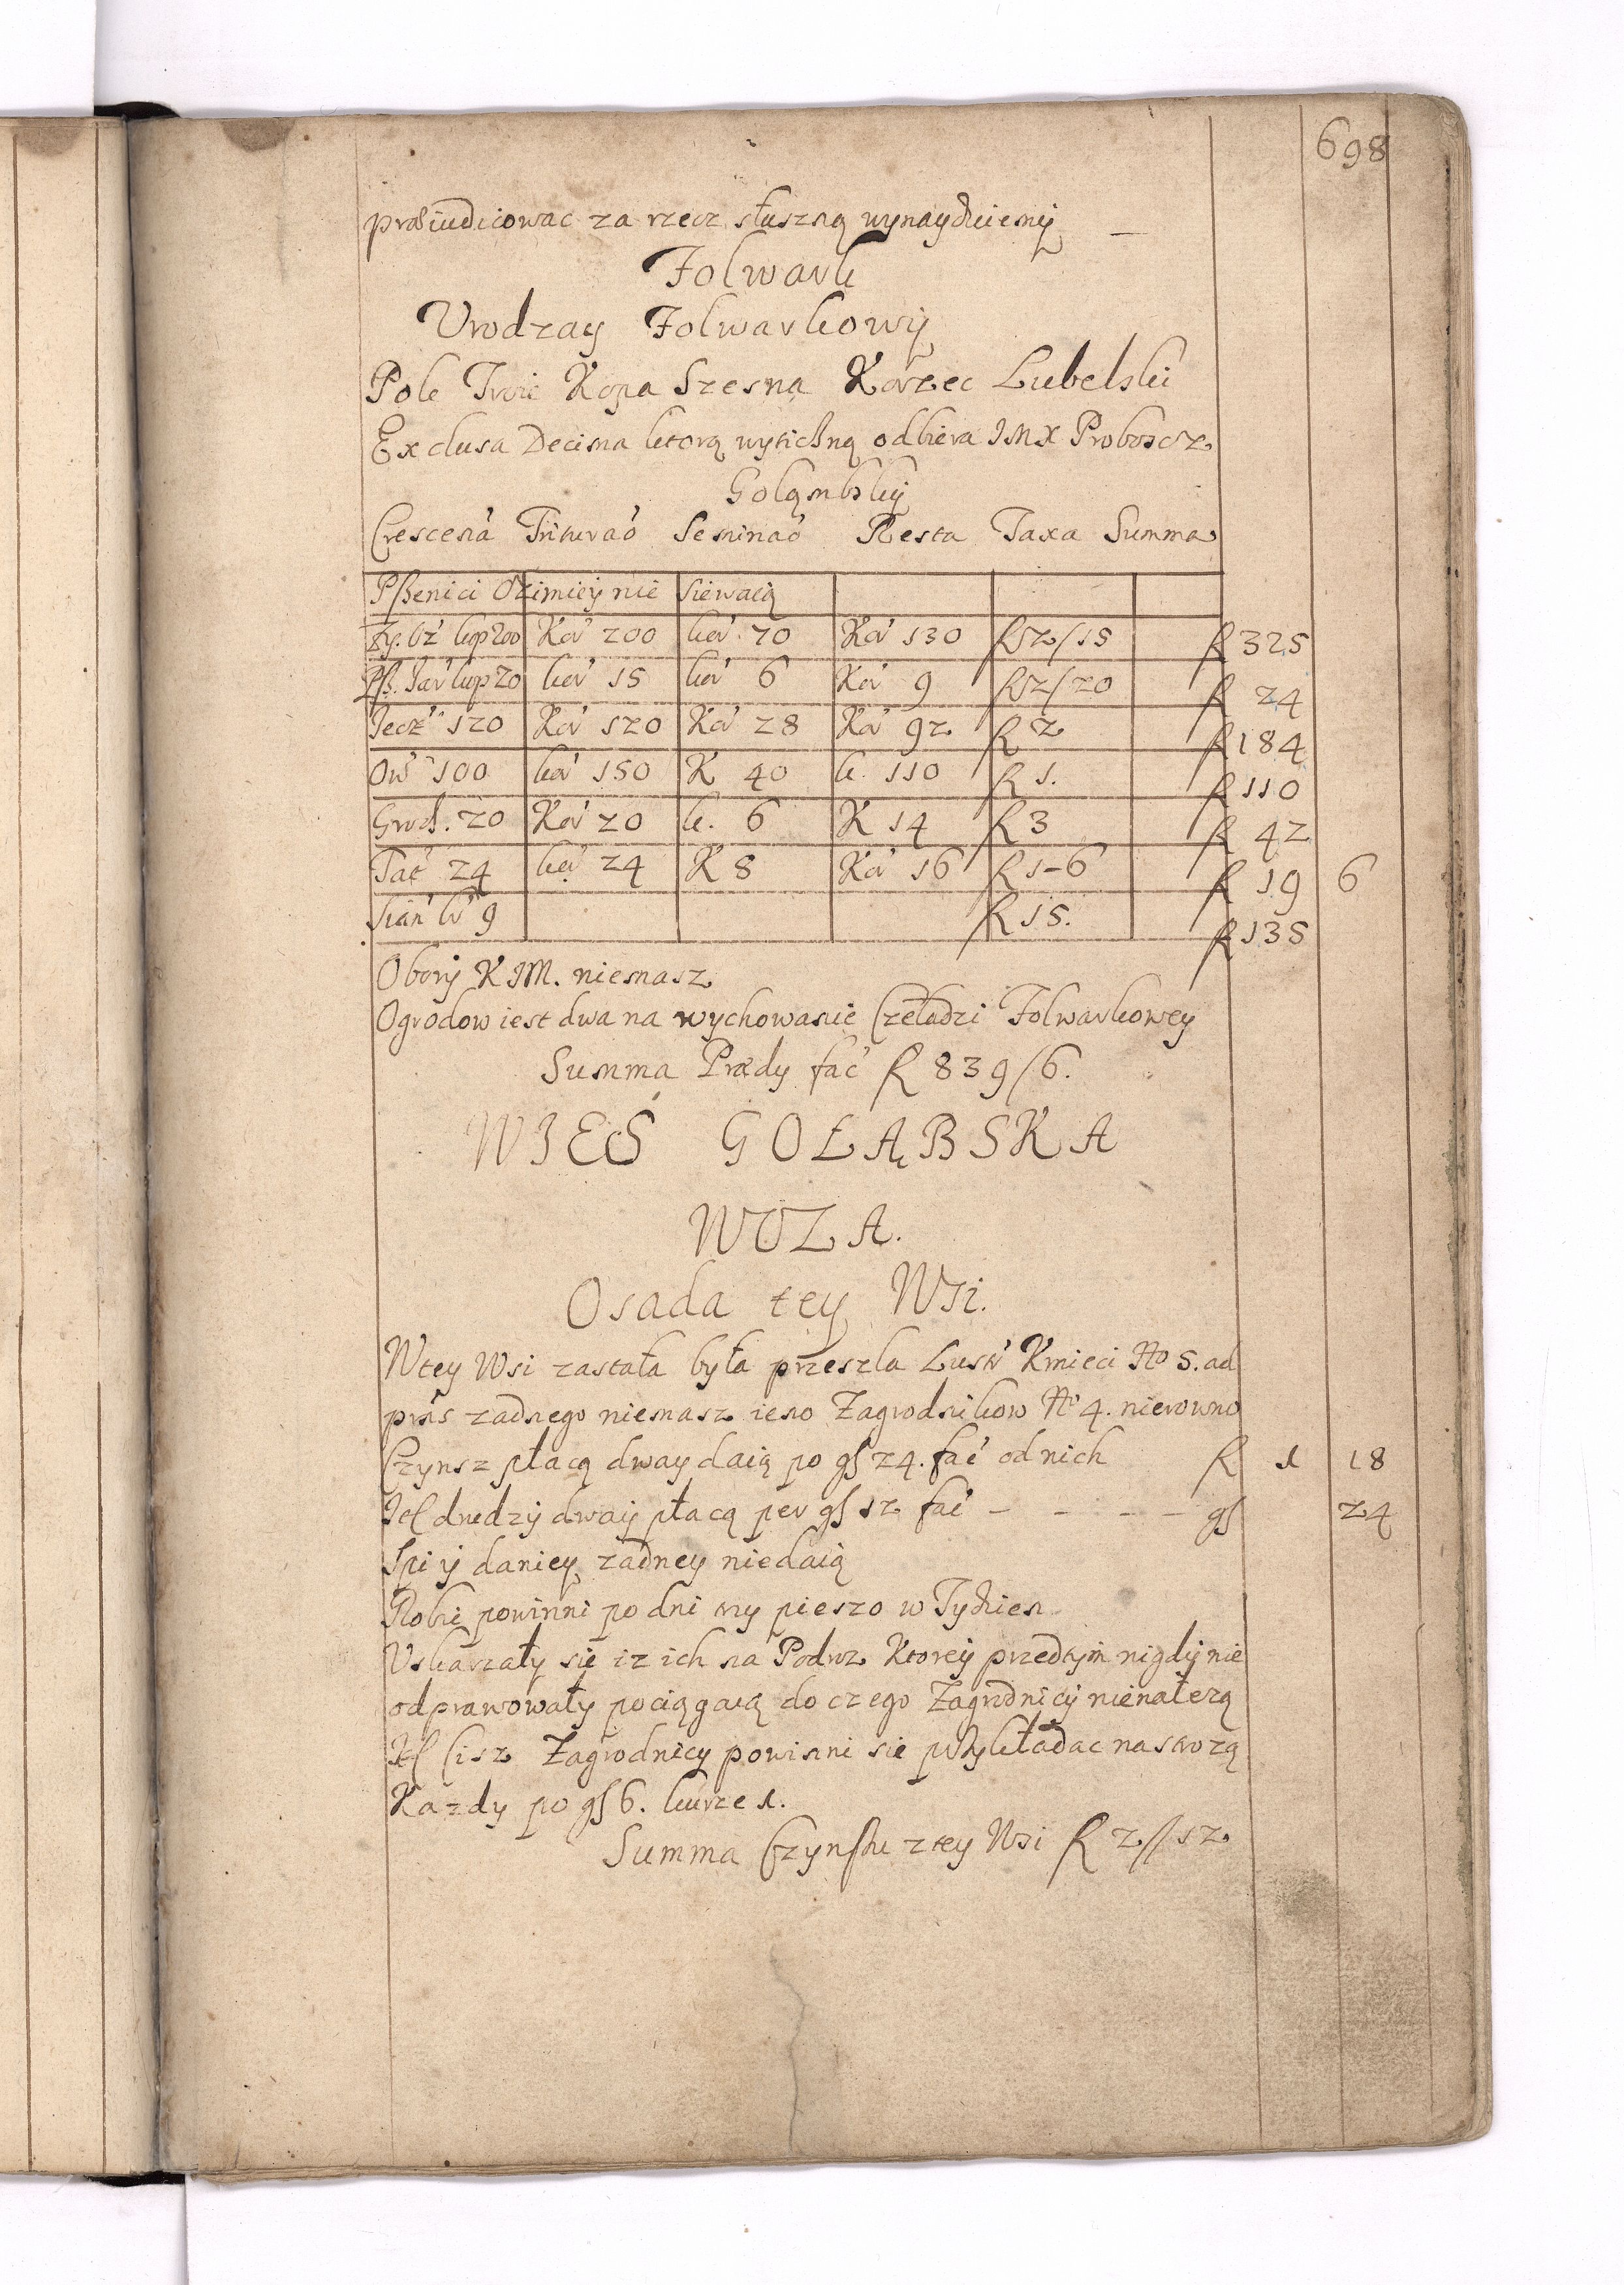 698
præiudicowac za rzecz słuszną wynaydziemy —
Folwark
Urodzay Folwarkowy
Pole Troie Kopa Szesna Korzec Lubelski
Exclusa Decima ktorą wytichną odbiera JMX Proboscz
Goląmbsky
Crescená Trituraó Seminaó Resta Taxa Summa
Pszenici Ozimiey nie siewaią
Zy. Oz kop 200 Kor 200 kor 70 Kor 130 fl 2/15 fl 325
Psz. Jar kop 20 kor 15 kor 6 Kor 9 fl 2/20 fl 24
Jecz 120 Kor 120 Kor 28 Kor 92 fl 2 fl 184
Ow 100 kor 150 K 40 k. 110 fl 1. fl 110
Groch. 20 Kor 20 k. 6 K 14 fl 3 fl 42
Tat 24 kor 24 K 8 Kor 16 fl 1-6 fl 19 6
Sian 9 fl 15. fl 135
Obory KJM. niemasz
Ogrodow iest dwa na wychowanie Czeladzi Folwarkowey
Summa Prædy fać fl 839/6.
WIES GOŁĄBSKA
WOLA.
Osada tey Wsi.
W tey Wsi zastała była przeszla Lustr Kmieci No 5. ad
præs zadnego niemasz ieno Zagrodnikow No 4. nierowno
Czynsz płacą dway daią po gß 24. fać od nich fl 1 18
Jtl drudzy dway płacą per gß 12 fać - - - - gß 24
Spiży daniey zadney niedaią
Robic powinni po dni trzy pieszo w Tydzien
Uskarzały się iz ich na Podwz Ktorey przedtym nigdy nie
odprawowały pociągaią do czego Zagrodnicy nienależą
Jtl Cisz Zagrodnicy powinni sie przykładac na strozą
Kazdy po gß 6. kurze 1.
Summa Czynszu z tey Wsi fl 2//12